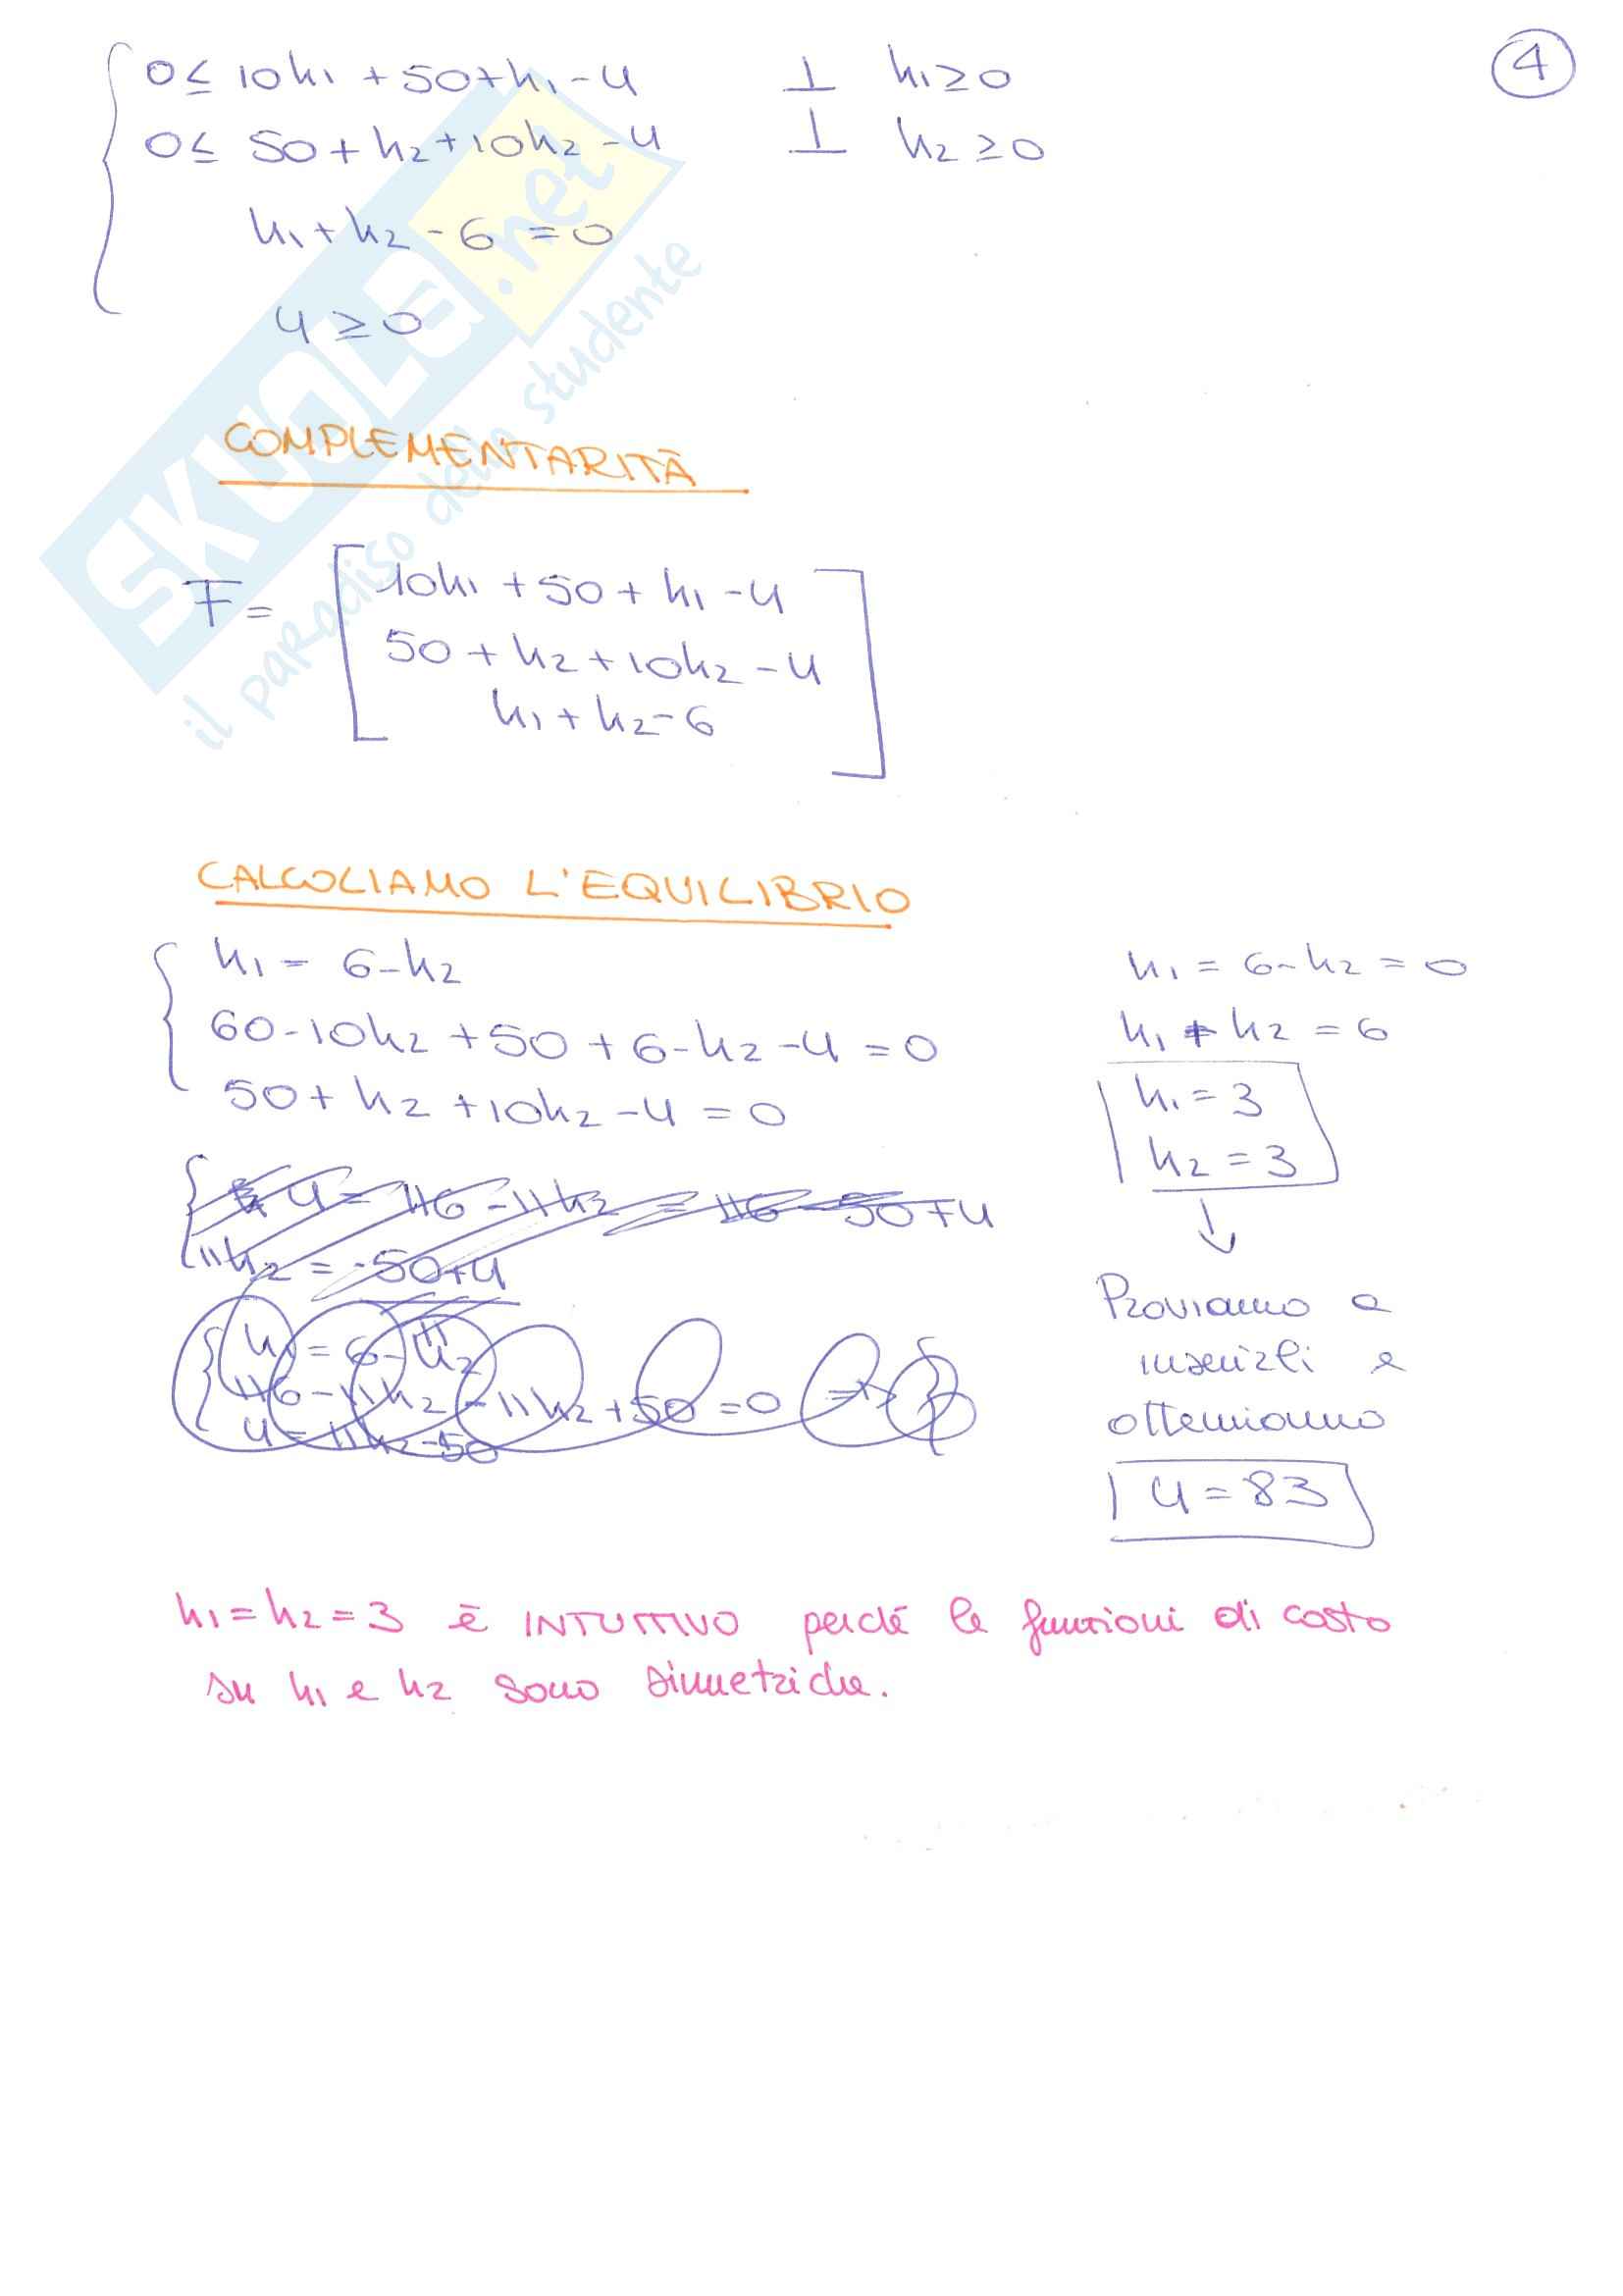 4
0 ≤ 10h1 + 50 + h1 - u ⊥ h1 ≥ 0
0 ≤ 50 + h2 + 10h2 - u ⊥ h2 ≥ 0
h1 + h2 - 6 = 0
u ≥ 0
SKUOLA.net
il paradiso dello studente
COMPLEMENTARITÀ
F =
10h1 + 50 + h1 - u
50 + h2 + 10h2 - u
h1 + h2 - 6
CALCOLIAMO L'EQUILIBRIO
h1 = 6 - h2
60 - 10h2 + 50 + 6 - h2 - u = 0
50 + h2 + 10h2 - u = 0
u = 116 - 11h2 = 116 - 50 + u
11h2 = -50 + u
h1 = 6 - h2
116 - 11h2 - 11h2 + 50 = 0
u = 11h2 - 50
h1 = 6 - h2 = 0
h1 + h2 = 6
h1 = 3
h2 = 3
↓
Proviamo a
inserirli e
otteniamo
u = 83
h1 = h2 = 3 è INTUITIVO perché le funzioni di costo
su h1 e h2 sono simmetriche.